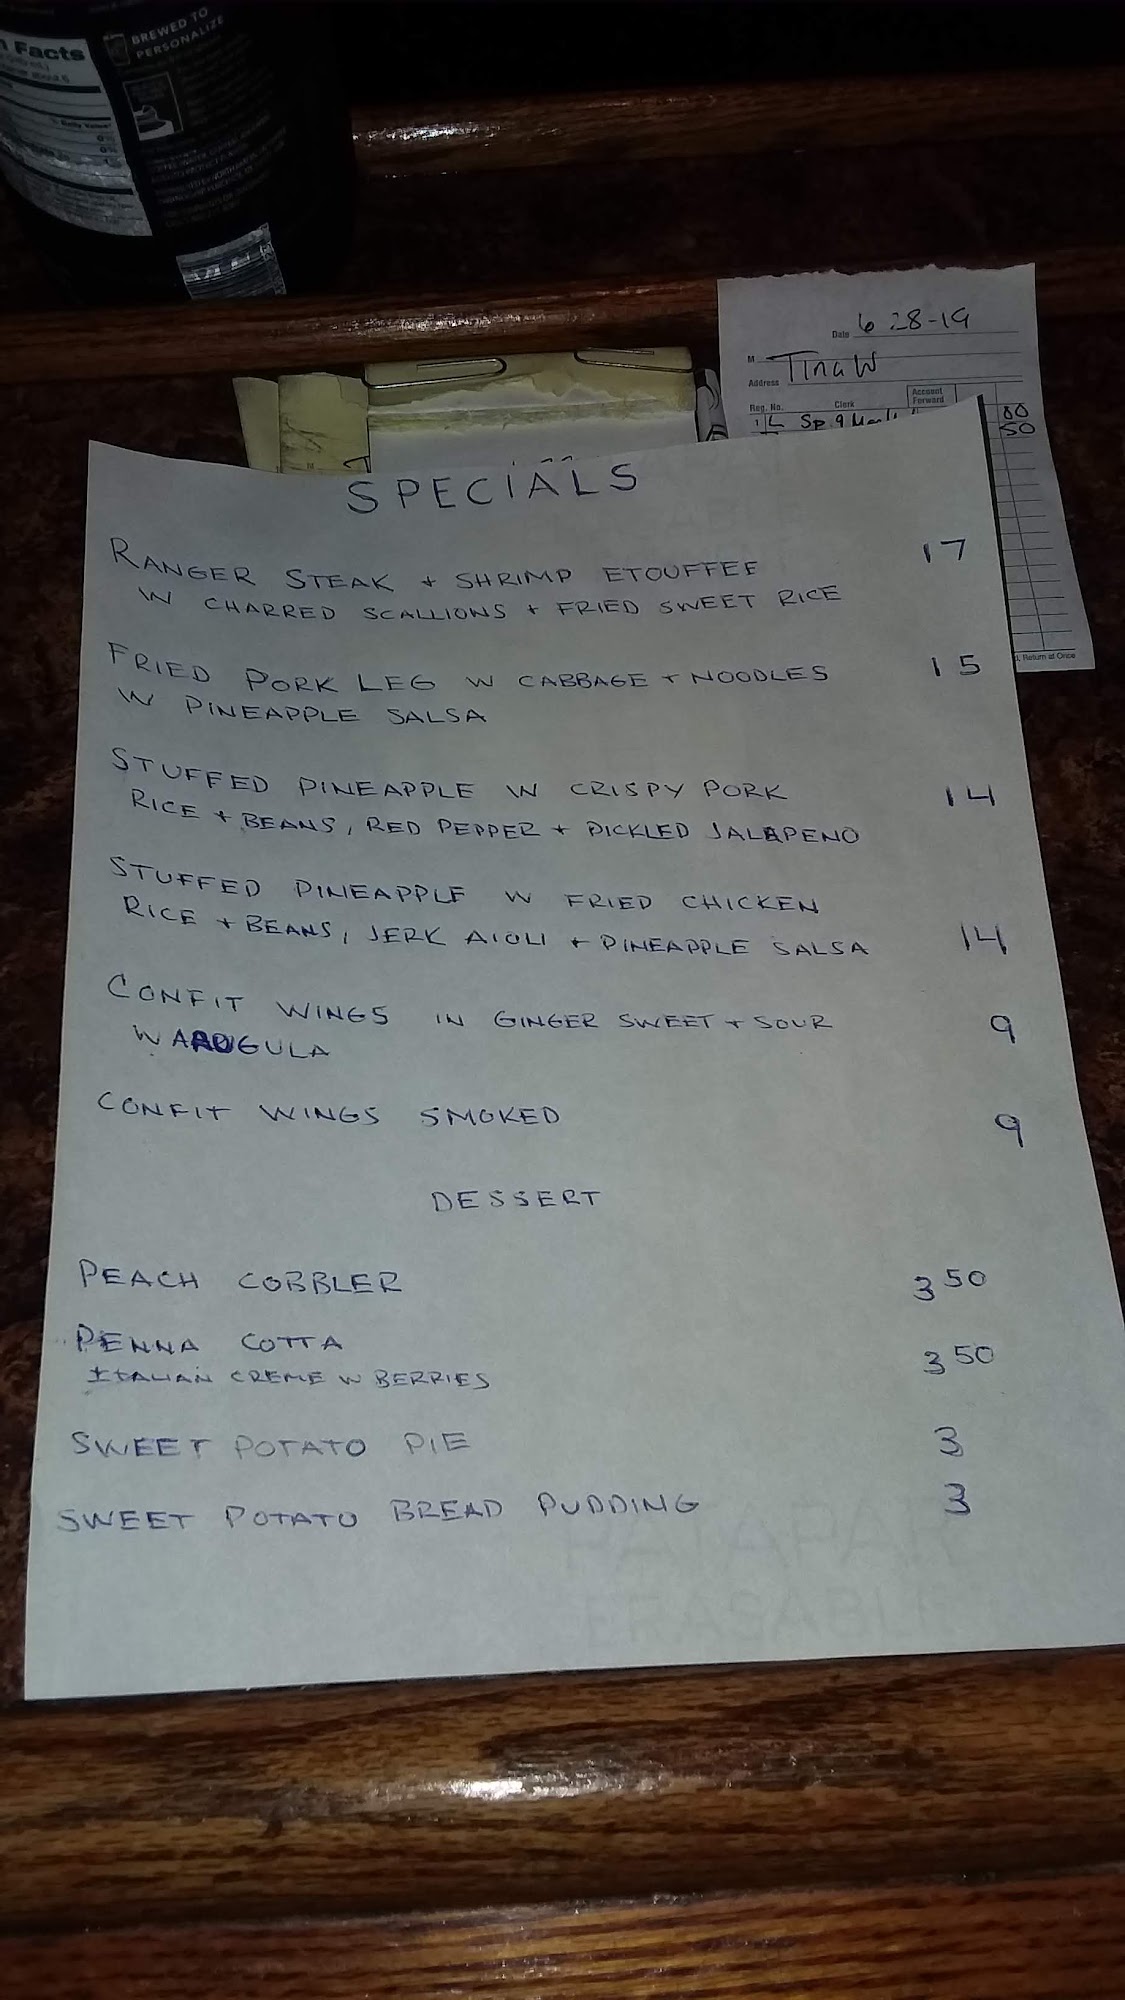 Facts
BREWED TO
PERSONALIZE
Date 6 28-19
M Tina W
Address
Reg. No. Clerk Account Forward
Sp 9
00
50
d, Return at Once
SPECIALS
RANGER STEAK + SHRIMP ETOUFFEE 17
W CHARRED SCALLIONS + FRIED SWEET RICE
FRIED PORK LEG W CABBAGE + NOODLES 15
W PINEAPPLE SALSA
STUFFED PINEAPPLE W CRISPY PORK 14
RICE + BEANS, RED PEPPER + PICKLED JALAPENO
STUFFED PINEAPPLE W FRIED CHICKEN
RICE + BEANS, JERK AIOLI + PINEAPPLE SALSA 14
CONFIT WINGS IN GINGER SWEET + SOUR 9
W ARUGULA
CONFIT WINGS SMOKED 9
DESSERT
PEACH COBBLER 3 50
PENNA COTTA
ITALIAN CREME W BERRIES 3 50
SWEET POTATO PIE 3
SWEET POTATO BREAD PUDDING 3